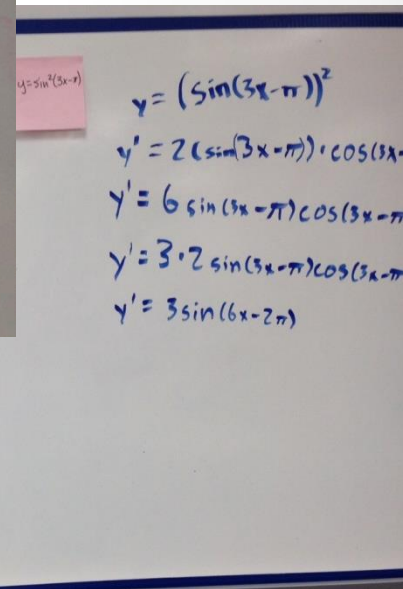 y=sin²(3x-π)
y = (sin(3x-π))²
y' = 2(sin(3x-π))·cos(3x-
y' = 6 sin(3x-π)cos(3x-π
y' = 3·2 sin(3x-π)cos(3x-π
y' = 3sin(6x-2π)